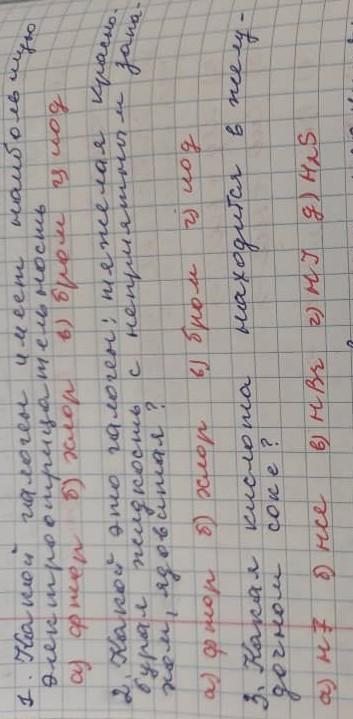 1. Какой галоген имеет наибольшую
электроотрицательность
а) фтор б) хлор в) бром г) иод
2. Какой это галоген; тяжелая красно-
бурая жидкость с неприятным запа-
хом, ядовитая?
а) фтор б) хлор в) бром г) иод
3. Какая кислота находится в желу-
дочном соке?
а) HF б) HCl в) HBr г) HJ д) H2S